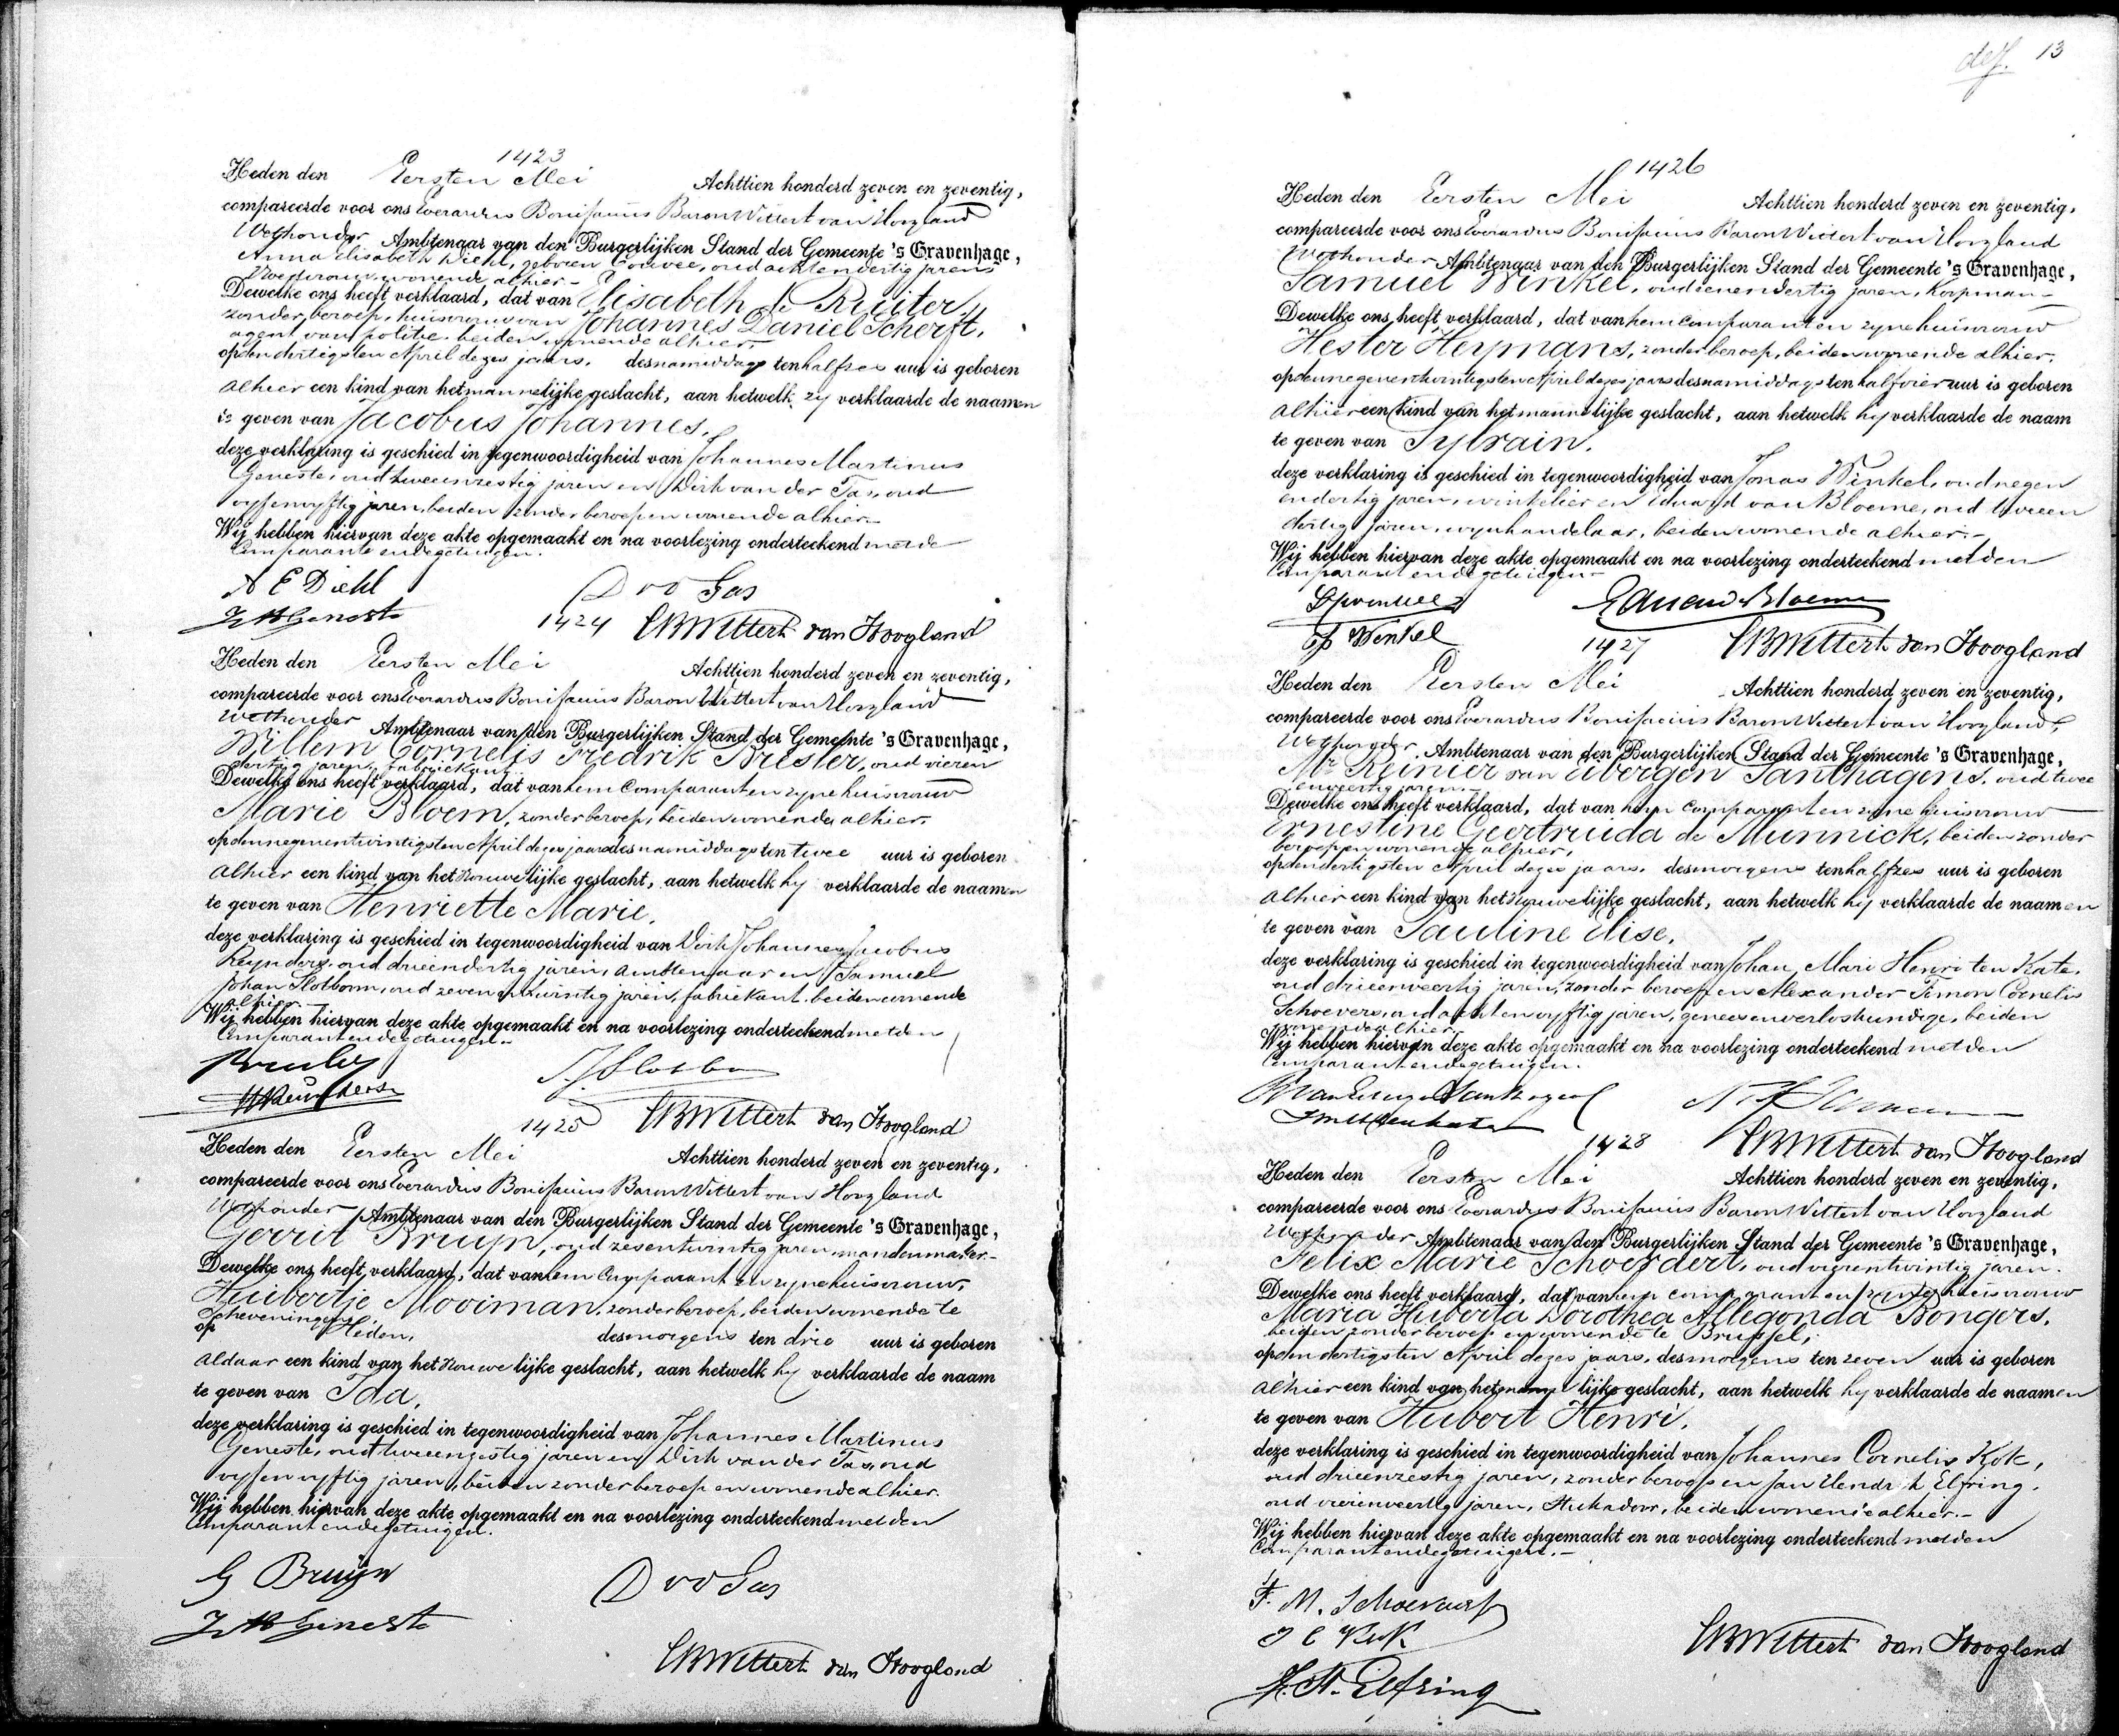 1423
Heden den Eersten Mei Achttien honderd zeven en zeventig,
compareerde voor ons Everardus Bonifacius Baron Wittert van Hoogland
Wethouder Ambtenaar van den Burgerlijken Stand der Gemeente 's Gravenhage,
Anna Elisabeth Diehl, geboren Couvee, oud achtendertig jaren
Vroedvrouw, wonende alhier.-
Dewelke ons heeft verklaard, dat van Elisabeth de Ruiter,
zonder beroep, huisvrouw van Johannes Daniel Scherft,
agent van politie, beiden wonende alhier.-
op den dertigsten April dezes jaars, des namiddags ten half zes uur is geboren
alhier een kind van het mannelijke geslacht, aan hetwelk zy verklaarde de naamen
te geven van Jacobus Johannes.
deze verklaring is geschied in tegenwoordigheid van Johannes Martinus
Geneste, oud tweeenzestig jaren en Dirk van der Tas, oud
vyfenvyftig jaren, beiden zonder beroep en wonende alhier.
Wij hebben hiervan deze akte opgemaakt en na voorlezing onderteekend met de
Comparante en de getuigen.
A E Diehl D vd Tas
J M Geneste
1424 EBWittert van Hoogland
Heden den Eersten Mei Achttien honderd zeven en zeventig,
compareerde voor ons Everardus Bonifacius Baron Wittert van Hoogland
Wethouder Ambtenaar van den Burgerlijken Stand der Gemeente 's Gravenhage,
Willem Cornelis Fredrik Brester, oud vieren
dertig jaren, fabriekant.
Dewelke ons heeft verklaard, dat van hem Comparant en zyne huisvrouw
Marie Bloem, zonder beroep, beiden wonende alhier.
op den negenentwintigsten April dezes jaars des namiddags ten twee uur is geboren
alhier een kind van het vrouwelijke geslacht, aan hetwelk hy verklaarde de naamen
te geven van Henriette Marie,
deze verklaring is geschied in tegenwoordigheid van Dirk Johannes Jacobus
Reynders, oud drieendertig jaren, ambtenaar en Samuel
Johan Slotboom, oud zevenentwintig jaren, fabriekant, beiden wonende
alhier.
Wij hebben hiervan deze akte opgemaakt en na voorlezing onderteekend met den
Comparant en de getuigen.-
1425 EBWittert van Hoogland
Heden den Eersten Mei Achttien honderd zeven en zeventig,
compareerde voor ons Everardus Bonifacius Baron Wittert van Hoogland
Wethouder Ambtenaar van den Burgerlijken Stand der Gemeente 's Gravenhage,
Gerrit Bruyn, oud zesentwintig jaren, mandenmaker.-
Dewelke ons heeft verklaard, dat van hem Comparant en zyne huisvrouw,
Huibertje Mooiman, zonder beroep, beiden wonende te
Scheveningen,
op Heden, des morgens ten drie uur is geboren
aldaar een kind van het vrouwelijke geslacht, aan hetwelk hy verklaarde de naam
te geven van Ida,
deze verklaring is geschied in tegenwoordigheid van Johannes Martinus
Geneste, oud tweeenzestig jaren en Dirk van der Tas, oud
vyfenvyftig jaren, beiden zonder beroep en wonende alhier.
Wij hebben hiervan deze akte opgemaakt en na voorlezing onderteekend met den
Comparant en de getuigen.
G Bruyn D vd Tas
J M Geneste
EBWittert van Hoogland
def. 13
1426
Heden den Eersten Mei Achttien honderd zeven en zeventig,
compareerde voor ons Everardus Bonifacius Baron Wittert van Hoogland
Wethouder Ambtenaar van den Burgerlijken Stand der Gemeente 's Gravenhage,
Samuel Winkel, oud eenendertig jaren, Koopman-
Dewelke ons heeft verklaard, dat van hem Comparant en zyne huisvrouw
Hester Heymans, zonder beroep, beiden wonende alhier.
op den negenentwintigsten April dezes jaars des namiddags ten half vier uur is geboren
alhier een kind van het mannelijke geslacht, aan hetwelk hy verklaarde de naam
te geven van Sylvain.
deze verklaring is geschied in tegenwoordigheid van Jonas Winkel, oud negen
endertig jaren, winkelier en Eduard van Bloeme, oud tweeen
dertig jaren, wynhandelaar, beiden wonende alhier.-
Wij hebben hiervan deze akte opgemaakt en na voorlezing onderteekend met den
Comparant en de getuigen-
Winkel
1427 EBWittert van Hoogland
Heden den Eersten Mei Achttien honderd zeven en zeventig,
compareerde voor ons Everardus Bonifacius Baron Wittert van Hoogland,
Wethouder Ambtenaar van den Burgerlijken Stand der Gemeente 's Gravenhage,
Mr Reinier van Eibergen Santhagens, oud twee
enveertig jaren.-
Dewelke ons heeft verklaard, dat van hem Comparant en zyne huisvrouw
Ernestine Geertruida de Munnick, beiden zonder
beroep en wonende alhier,
op den dertigsten April dezes jaars, des morgens ten half zes uur is geboren
alhier een kind van het vrouwelijke geslacht, aan hetwelk hy verklaarde de naamen
te geven van Pauline Elise,
deze verklaring is geschied in tegenwoordigheid van Johan Mari Henri ten Kate,
oud drieenveertig jaren, zonder beroep en Alexander Timon Cornelis
Schoevers, oud achtenvyftig jaren, genees en verloskundige, beiden
wonende alhier.
Wij hebben hiervan deze akte opgemaakt en na voorlezing onderteekend met den
Comparant en de getuigen.
1428 EBWittert van Hoogland
Heden den Eersten Mei Achttien honderd zeven en zeventig,
compareerde voor ons Everardus Bonifacius Baron Wittert van Hoogland
Wethouder Ambtenaar van den Burgerlijken Stand der Gemeente 's Gravenhage,
Felix Marie Schoerdert, oud vierentwintig jaren.
Dewelke ons heeft verklaard, dat van hem comparant en zyne huisvrouw
Maria Huberta Dorothea Allegonda Bongers,
beiden zonder beroep en wonende te Brussel,
op den dertigsten April dezes jaars, des morgens ten zeven uur is geboren
alhier een kind van het mannelijke geslacht, aan hetwelk hy verklaarde de naamen
te geven van Hubert Henri,
deze verklaring is geschied in tegenwoordigheid van Johannes Cornelis Kok,
oud drieenzestig jaren, zonder beroep en Jan Hendrik Elfring,
oud vierenveertig jaren, Stukadoor, beiden wonende alhier.-
Wij hebben hiervan deze akte opgemaakt en na voorlezing onderteekend met den
Comparant en de getuigen.-
F. M.
J C Kok EBWittert van Hoogland
J. H. Elfring